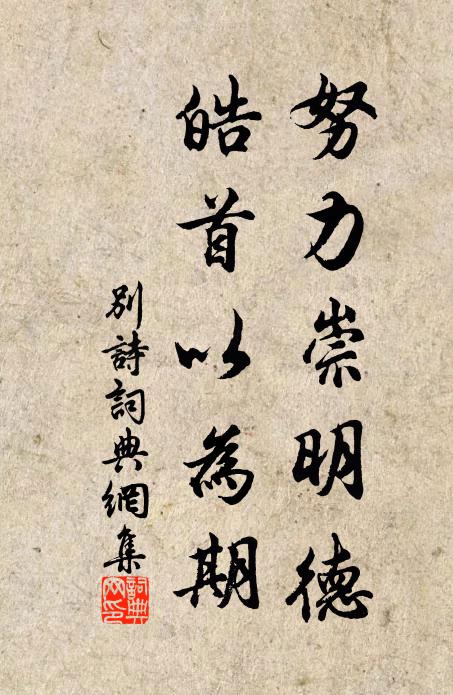 努力崇明德
皓首以為期
別詩詞典網集
詞典
网印